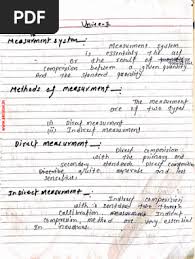 PDF
Unit-1
Measurment system _:
Measurment system
is essentially the act
or the result of
comperision between a given quantity
And the standard quantity
Methods of measurment _:
The measurment
are of two types
(i) Direct measurment
(ii) Indirect measurment
Direct measurment _:
Direct comperision
with the primary or
secondary standard Direct comperision
and less
sensitive
Indirect measurment _:
Indirect comperision
with
Callibration Indirect
comperision, method are very essential
In